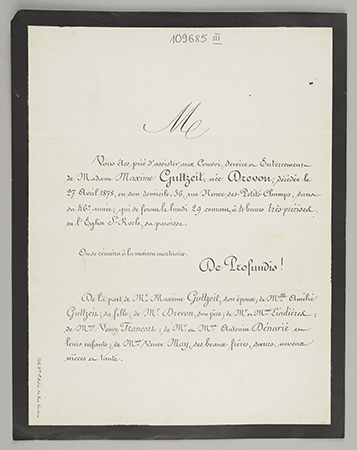 109685 III
M
Vous êtes prié d'assister aux Convoi, Service et Enterrement
de Madame Maxime Guttzeit, née Drevon, décédée le
27 Avril 1878, en son domicile, 36, rue Neuve-des-Petits-Champs, dans
sa 46e année; qui se feront le lundi 29 courant, à 4 heures très précises,
en l'Eglise St Roch, sa paroisse.
On se réunira à la maison mortuaire.
De Profundis!
De la part de Mr Maxime Guttzeit, son époux, de Melle Amélie
Guttzeit, sa fille; de Mr Drevon, son père; de Mr et Mme
de Mme Veuve Francart; de Mr et Mme Antonin Dénarié et
leurs enfants; de Mme Veuve May, ses beaux-frères, sœurs, neveux
nièces et tante.